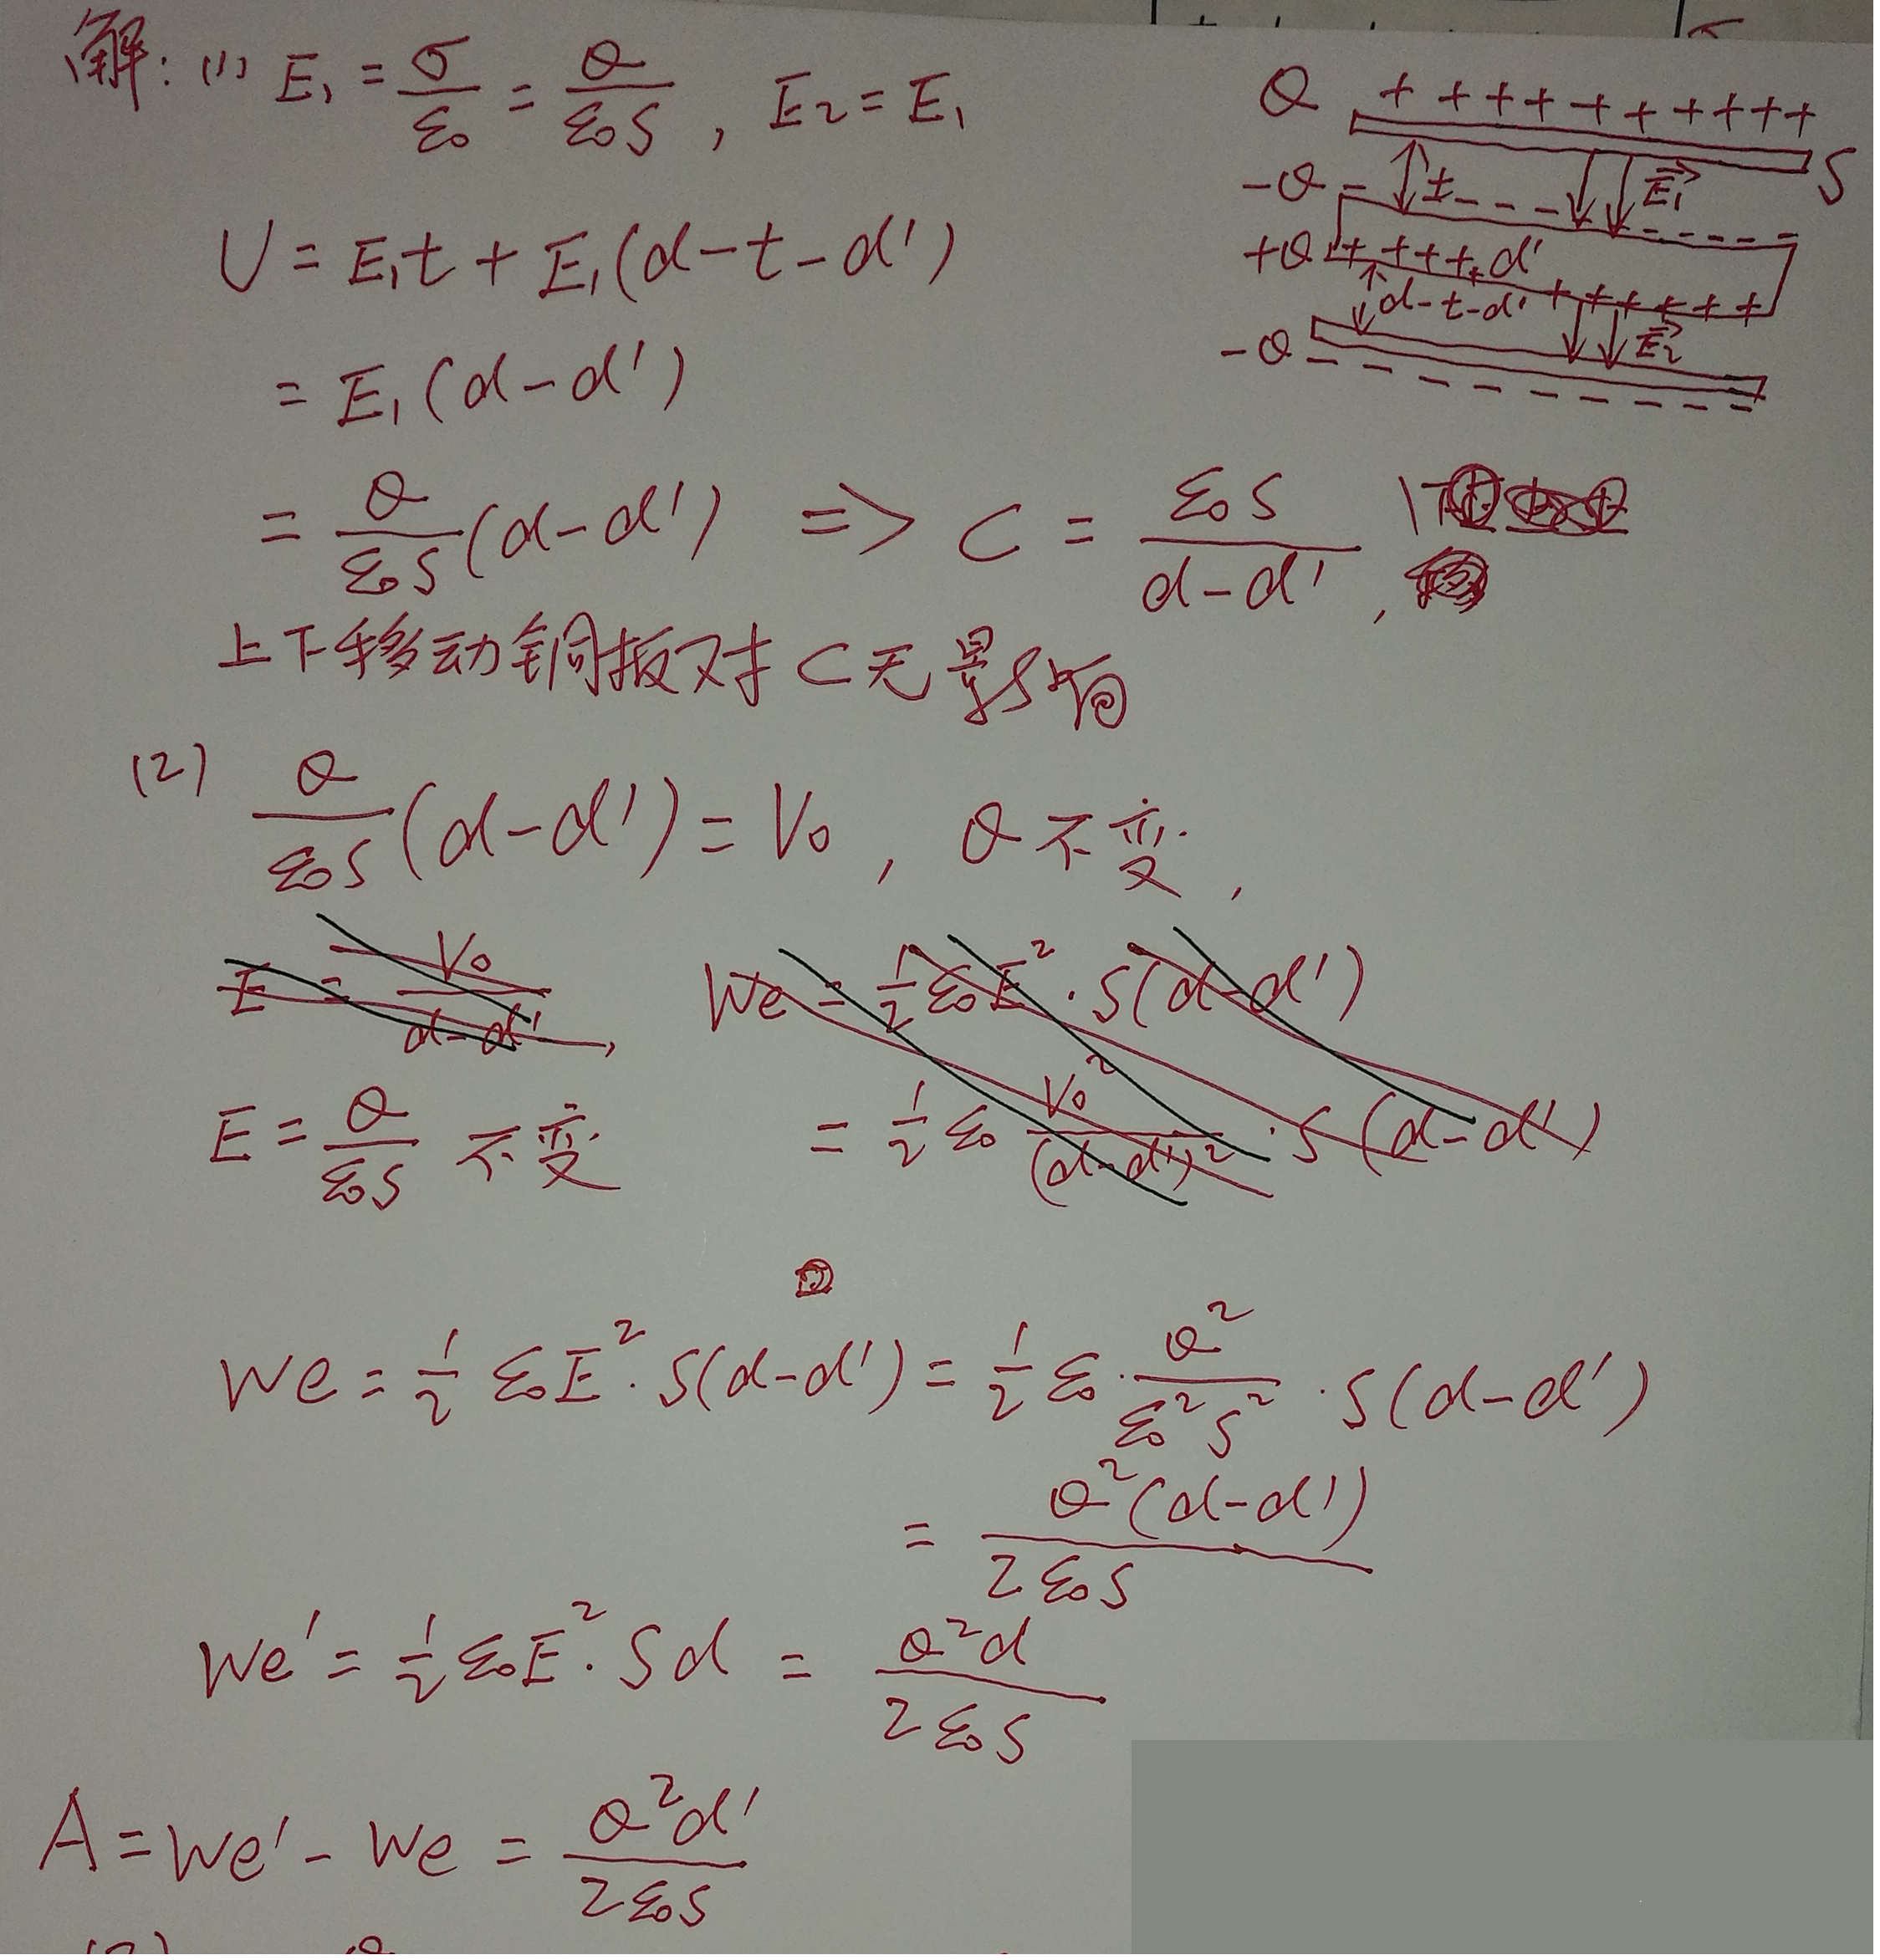 解: (1) E₁ = σ/ε₀ = Q/(ε₀S) , E₂ = E₁
Q + + + + + + + + + + S
-Q - t - - - - E₁ - - - - -
+Q + + + + + d' + + + + + +
d-t-d' E₂
-Q - - - - - - - - -
U = E₁t + E₁(d-t-d')
= E₁(d-d')
= Q/(ε₀S) (d-d') => C = ε₀S/(d-d') ,
上下移动铜板对C无影响
(2) Q/(ε₀S) (d-d') = V₀ , Q不变,
E = V₀/(d-d') , We = 1/2 ε₀E² · S(d-d')
= 1/2 ε₀ V₀²/(d-d')² · S(d-d')
E = Q/(ε₀S) 不变
We = 1/2 ε₀E² · S(d-d') = 1/2 ε₀ · Q²/(ε₀²S²) · S(d-d')
= Q²(d-d')/(2ε₀S)
We' = 1/2 ε₀E² · Sd = Q²d/(2ε₀S)
A = We' - We = Q²d'/(2ε₀S)